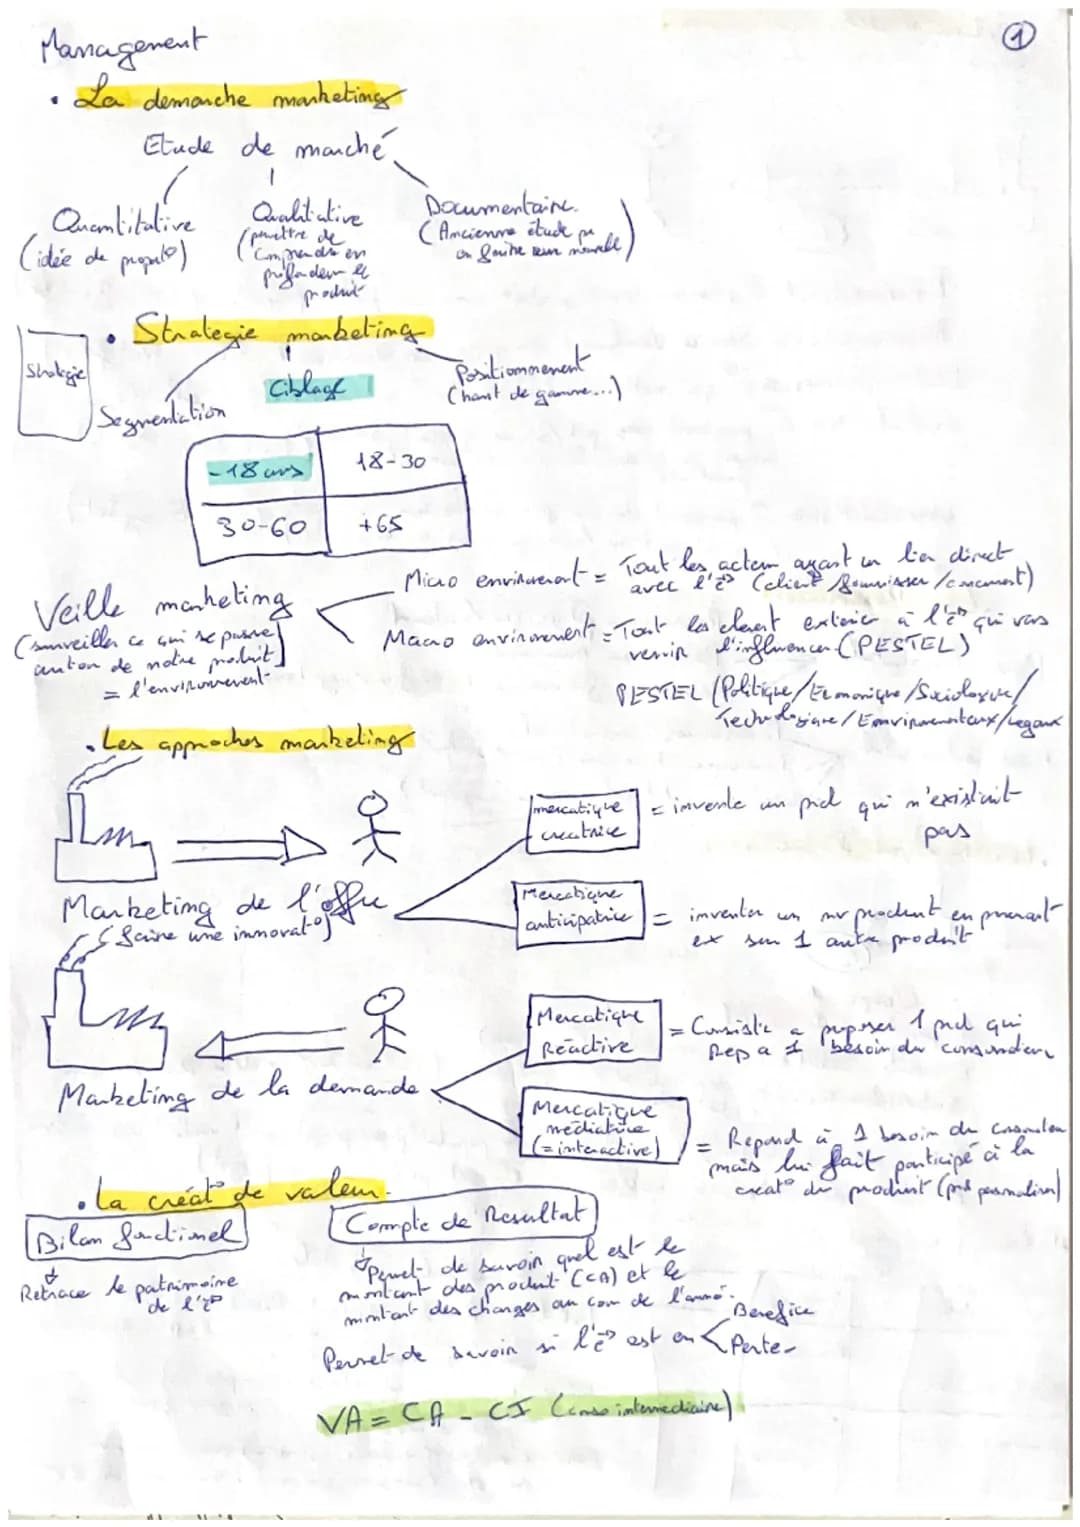 Management
1
• La demarche marketing
Etude de marché
Quantitative
(idée de propo°)
Qualitative
(permettre de
comprendre en
profondeur le
produit
Documentaire.
(Ancienne étude
on
• Strategie marketing
Strategie
Segmentation
Ciblage
Positionnement
(haut de gamme...)
-18 ans
18-30
30-60
+65
Veille marketing
(surveiller ce qui se passe
autour de notre produit)
= l'environnement
Micro environnement = Tout les acteurs ayant un lien direct
avec l'e° (client/fournisseur/concurrent)
Macro environnement = Tout les element exterieur à l'e° qui vas
venir l'influencer (PESTEL)
PESTEL (Politique/Economique/Sociologique/
Technologique/Environnementaux/Legaux
• Les approches marketing
Marketing de l'offre
(faire une innovat°)
mercatique
creatrice
= invente un prd qui n'existait
pas
Mercatique
anticipatrice
= inventer un nv produit en prenant
ex sur 1 autre produit
Marketing de la demande
Mercatique
Réactive
= Consiste a proposer 1 prd qui
Rep a 1 besoin du
Mercatique
mediatrice
(= interactive)
= Repond à 1 besoin du
mais lui fait participé à la
creat° du produit
• La créat° de valeur
Bilan fonctionel
Retrace le patrimoine
de l'e°
Compte de Resultat
Permet de savoir quel est le
montant des produit (CA) et le
montant des charges au cour de l'anné.
Permet de savoir si l'e° est en
Benefice
Perte
VA = CA - CI (conso intermediaire)